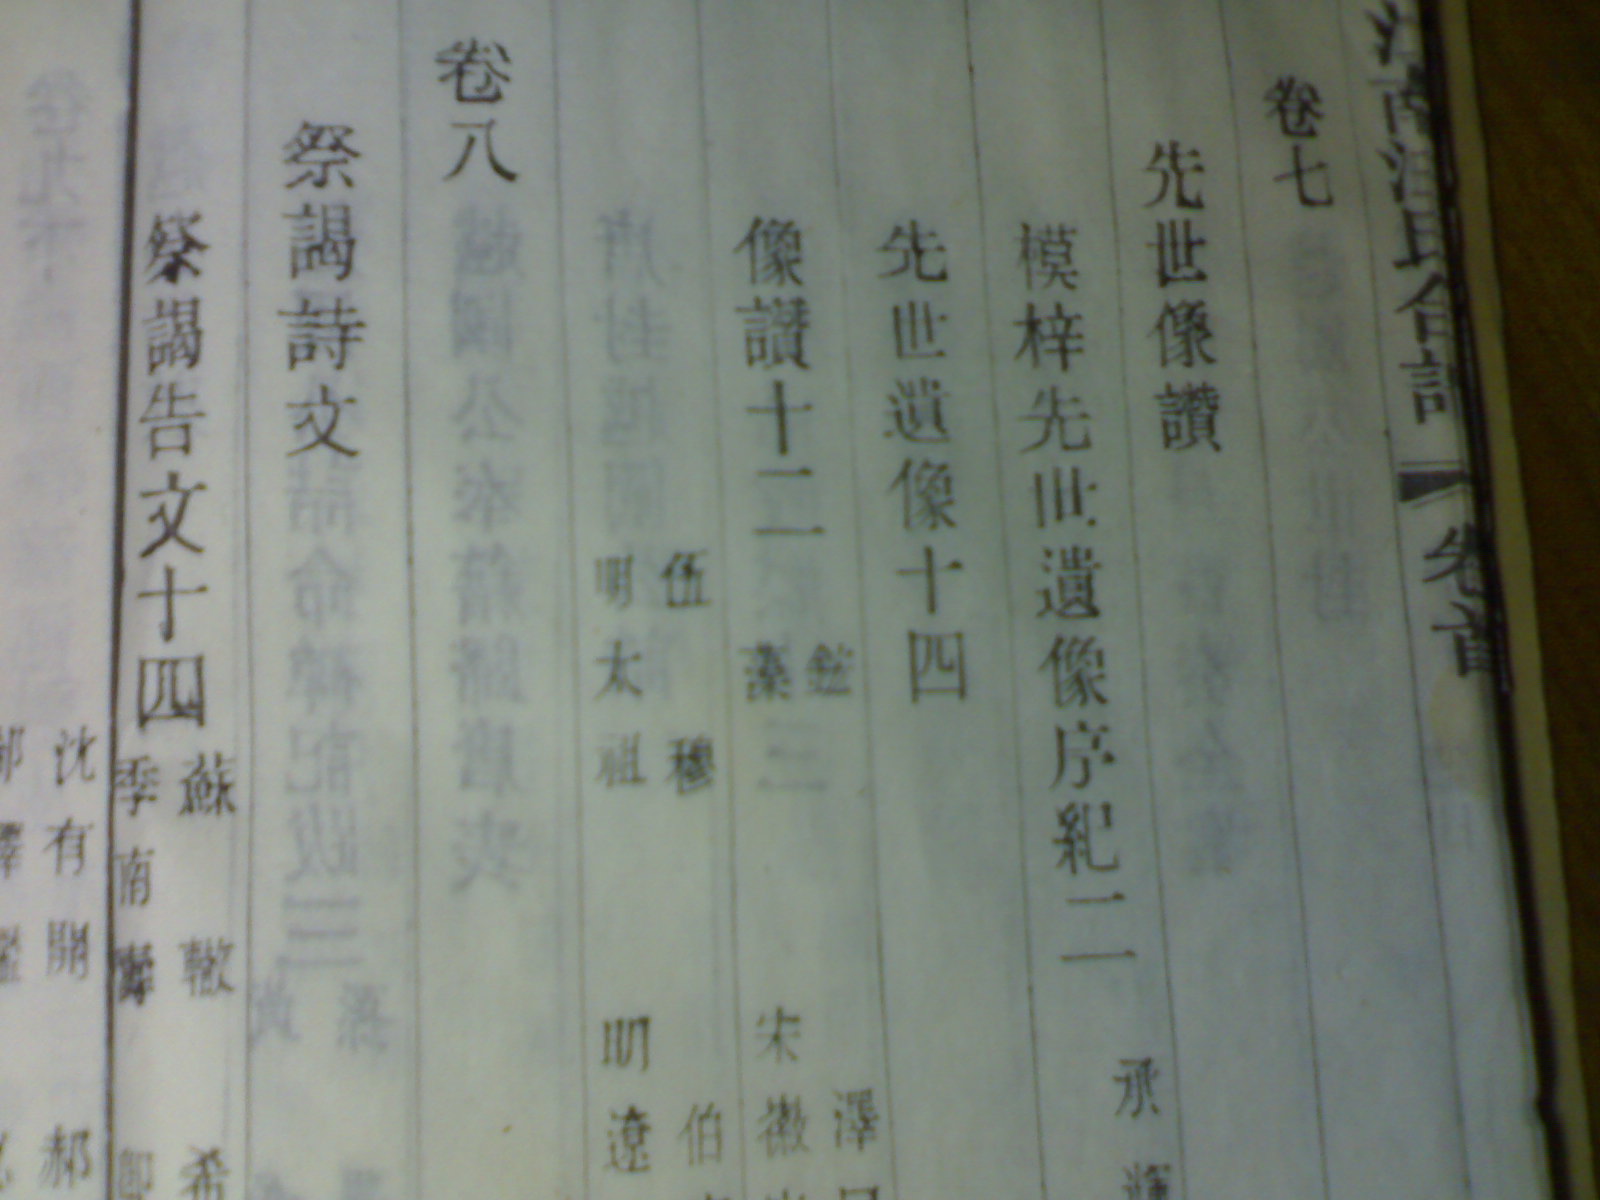 卷七
先世像讚
模梓先世遺像序紀二 承
先世遺像十四
像讚十二
鋐 澤
蓁 宋徽
伍穆 伯
明太祖 明遼
卷八
祭謁詩文
祭謁告文十四
蘇轍 希
季南
沈有開 郝